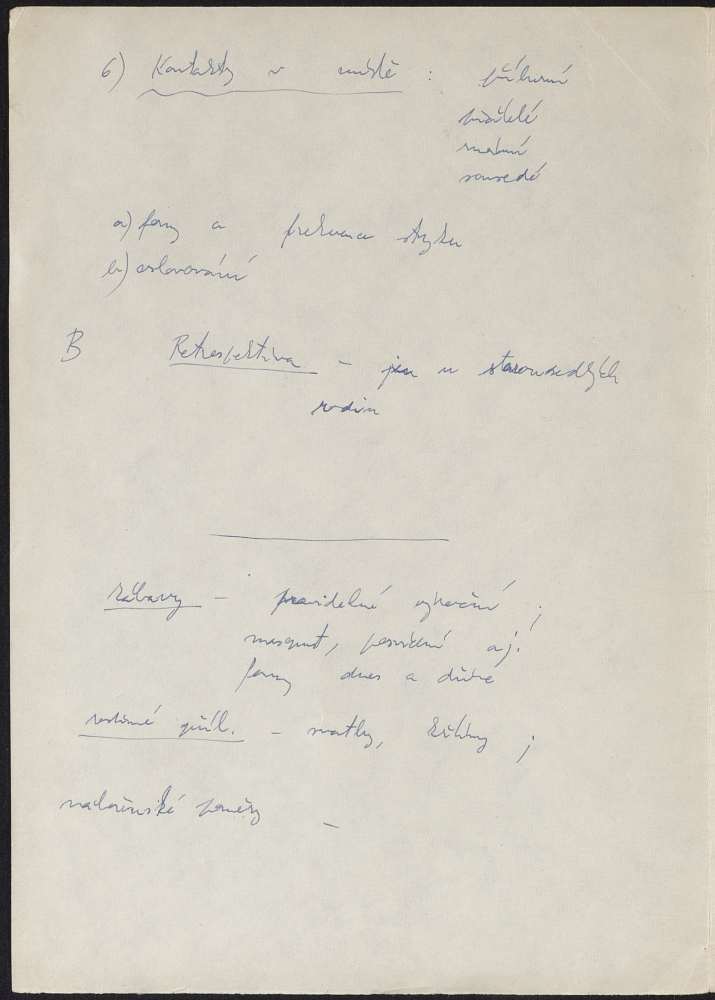 6) Kontakty v místě : příbuzní
přátelé
známí
sousedé
a) formy a frekvence styku
b) oslovování
B Retrospektiva – jen u starousedlých
rodin
zábavy – pravidelné výroční ;
masopust, posvícení aj.
formy dnes a dříve
rodinné příl. – svatby, křtiny ;
náboženské poměry –